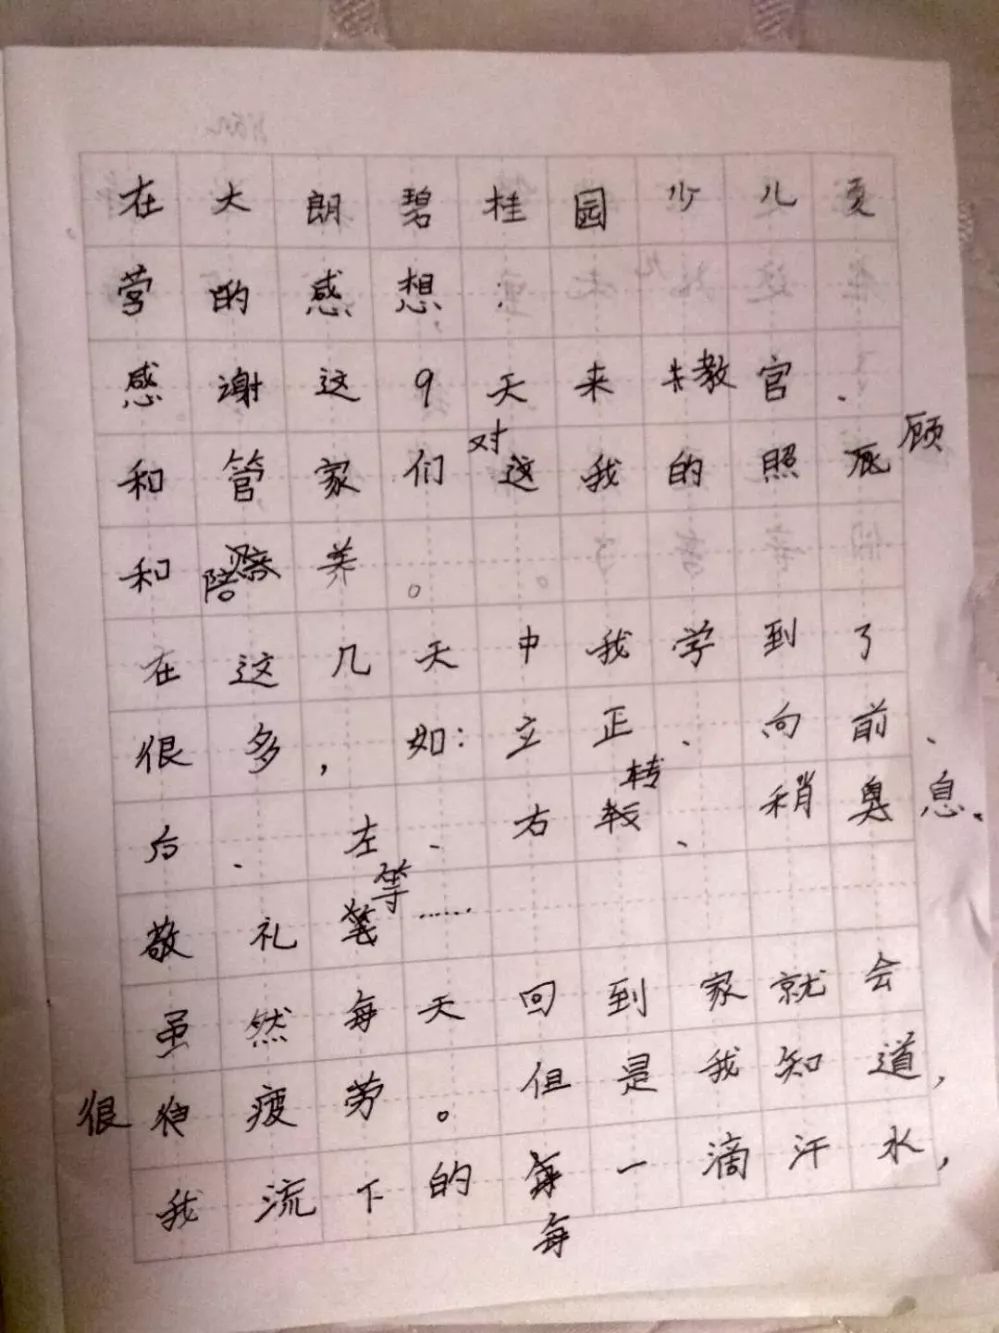 在大朗碧桂园少儿夏
营的感想:
感谢这9天来教官、
和管家们对我的照顾
和陪养。
在这几天中我学到了
很多,如:立正、向前、
后、左、右转、稍息、
敬礼等……
虽然每天回到家就会
很疲劳。但是我知道,
我流下的每一滴汗水,